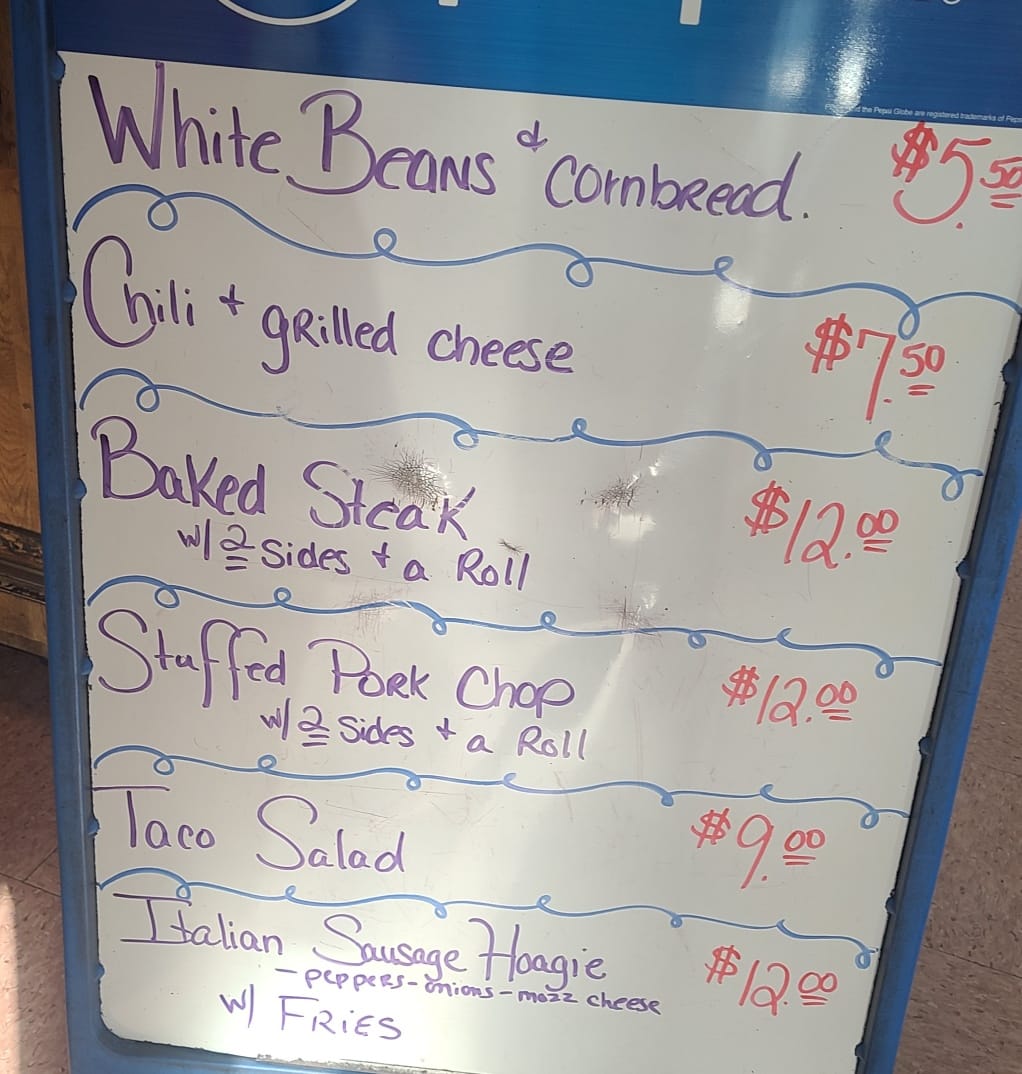 the Pepsi Globe are registered trademarks of Peps
White Beans & cornbread. $5.50
Chili + grilled cheese $7.50
Baked Steak $12.00
w/ 2 Sides + a Roll
Stuffed Pork Chop $12.00
w/ 2 Sides + a Roll
Taco Salad $9.00
Italian Sausage Hoagie $12.00
- peppers - onions - mozz cheese
w/ FRiES